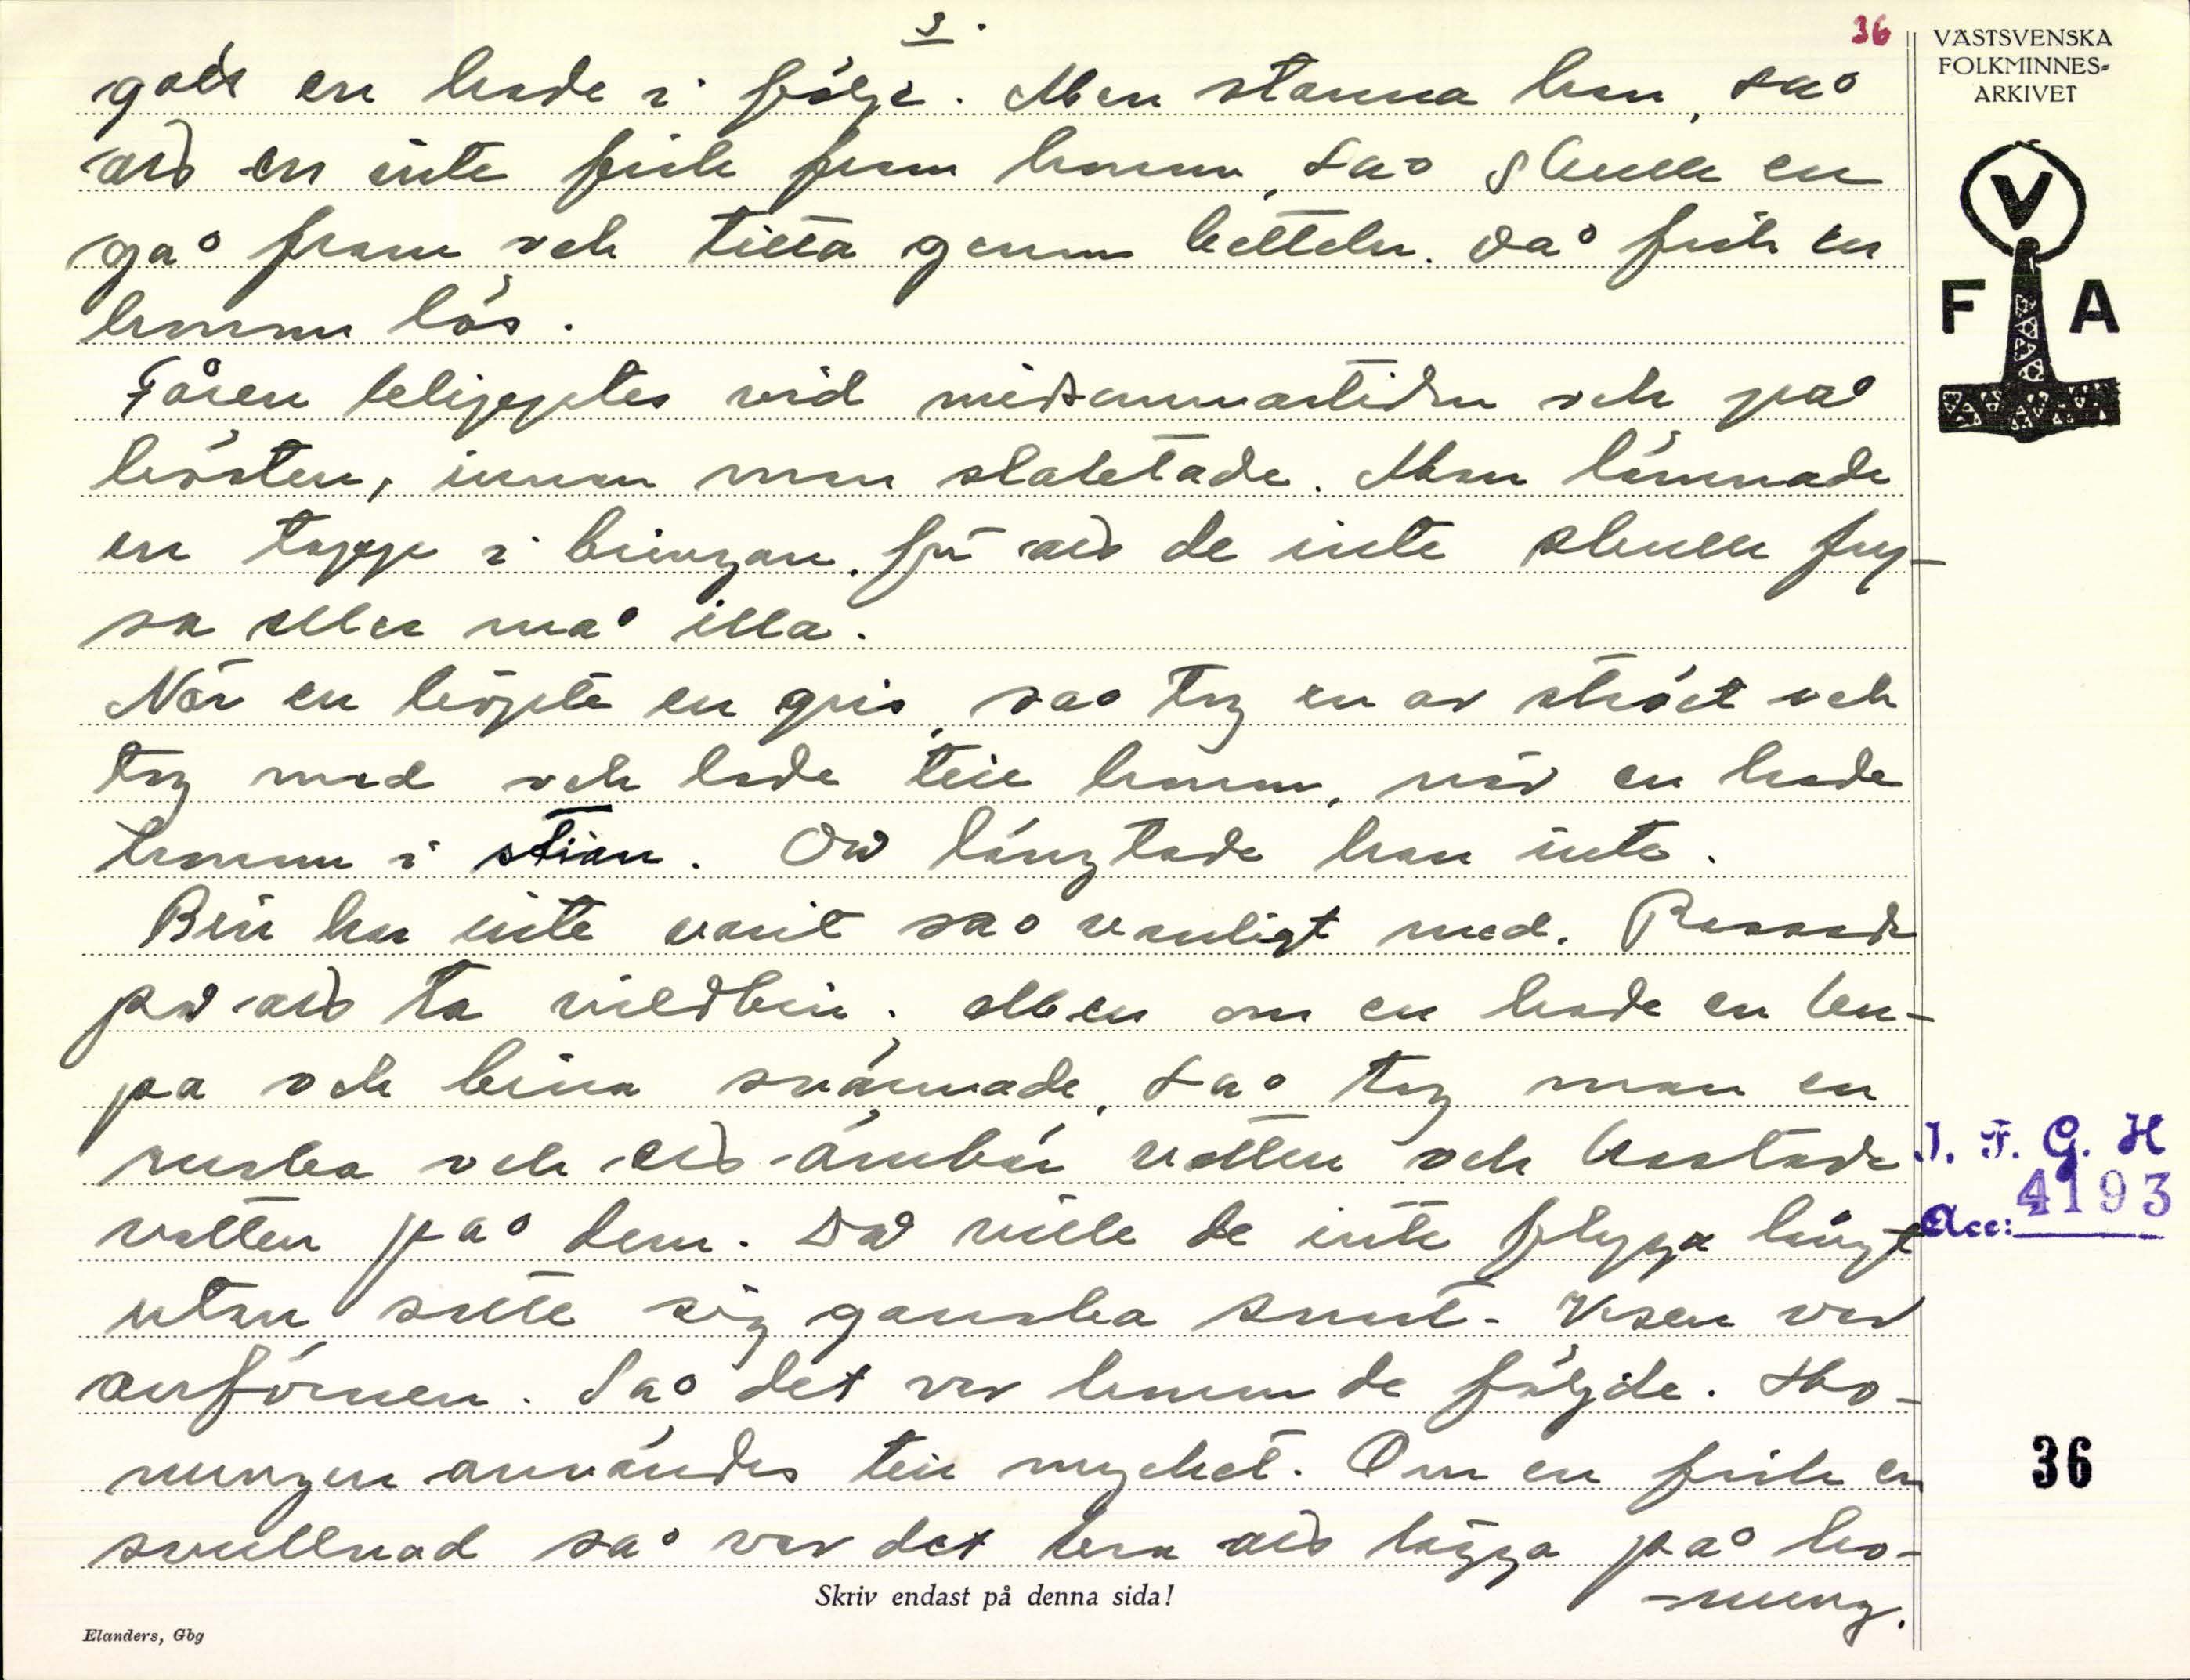 3.
36
VÄSTSVENSKA
FOLKMINNES-
ARKIVET
V
F A
en hade i följe. Men stanna han, så
att en inte fick fram honom, så skulle en
gå fram och titta genom betteln. Då fick en
honom lös.
Fåren beklipptes vid midsommartiden och på
hösten, innan man slaktade. Man lämnade
en tapp i bringan för att de inte skulle fry-
sa eller må illa.
När en köpte en gris, så tog en av ströet och
tog med och lade till honom, när en hade
honom i stian. Då längtade han inte.
Bin har inte varit så vanligt med.
på att ta vildbin. Men om en hade en ku-
pa och bina svärmade, så tog man en
ruska och ett ämbar vatten och kastade
vatten på dem. Då ville de inte flyga långt
utan satte sig ganska snart. Visen var
anföraren. Så det var honom de följde. Ho-
nungen användes till mycket. Om en fick en
svullnad så var det bra att lägga på ho-
-nung.
I. F. G. H
Acc: 4193
36
Skriv endast på denna sida!
Elanders, Gbg